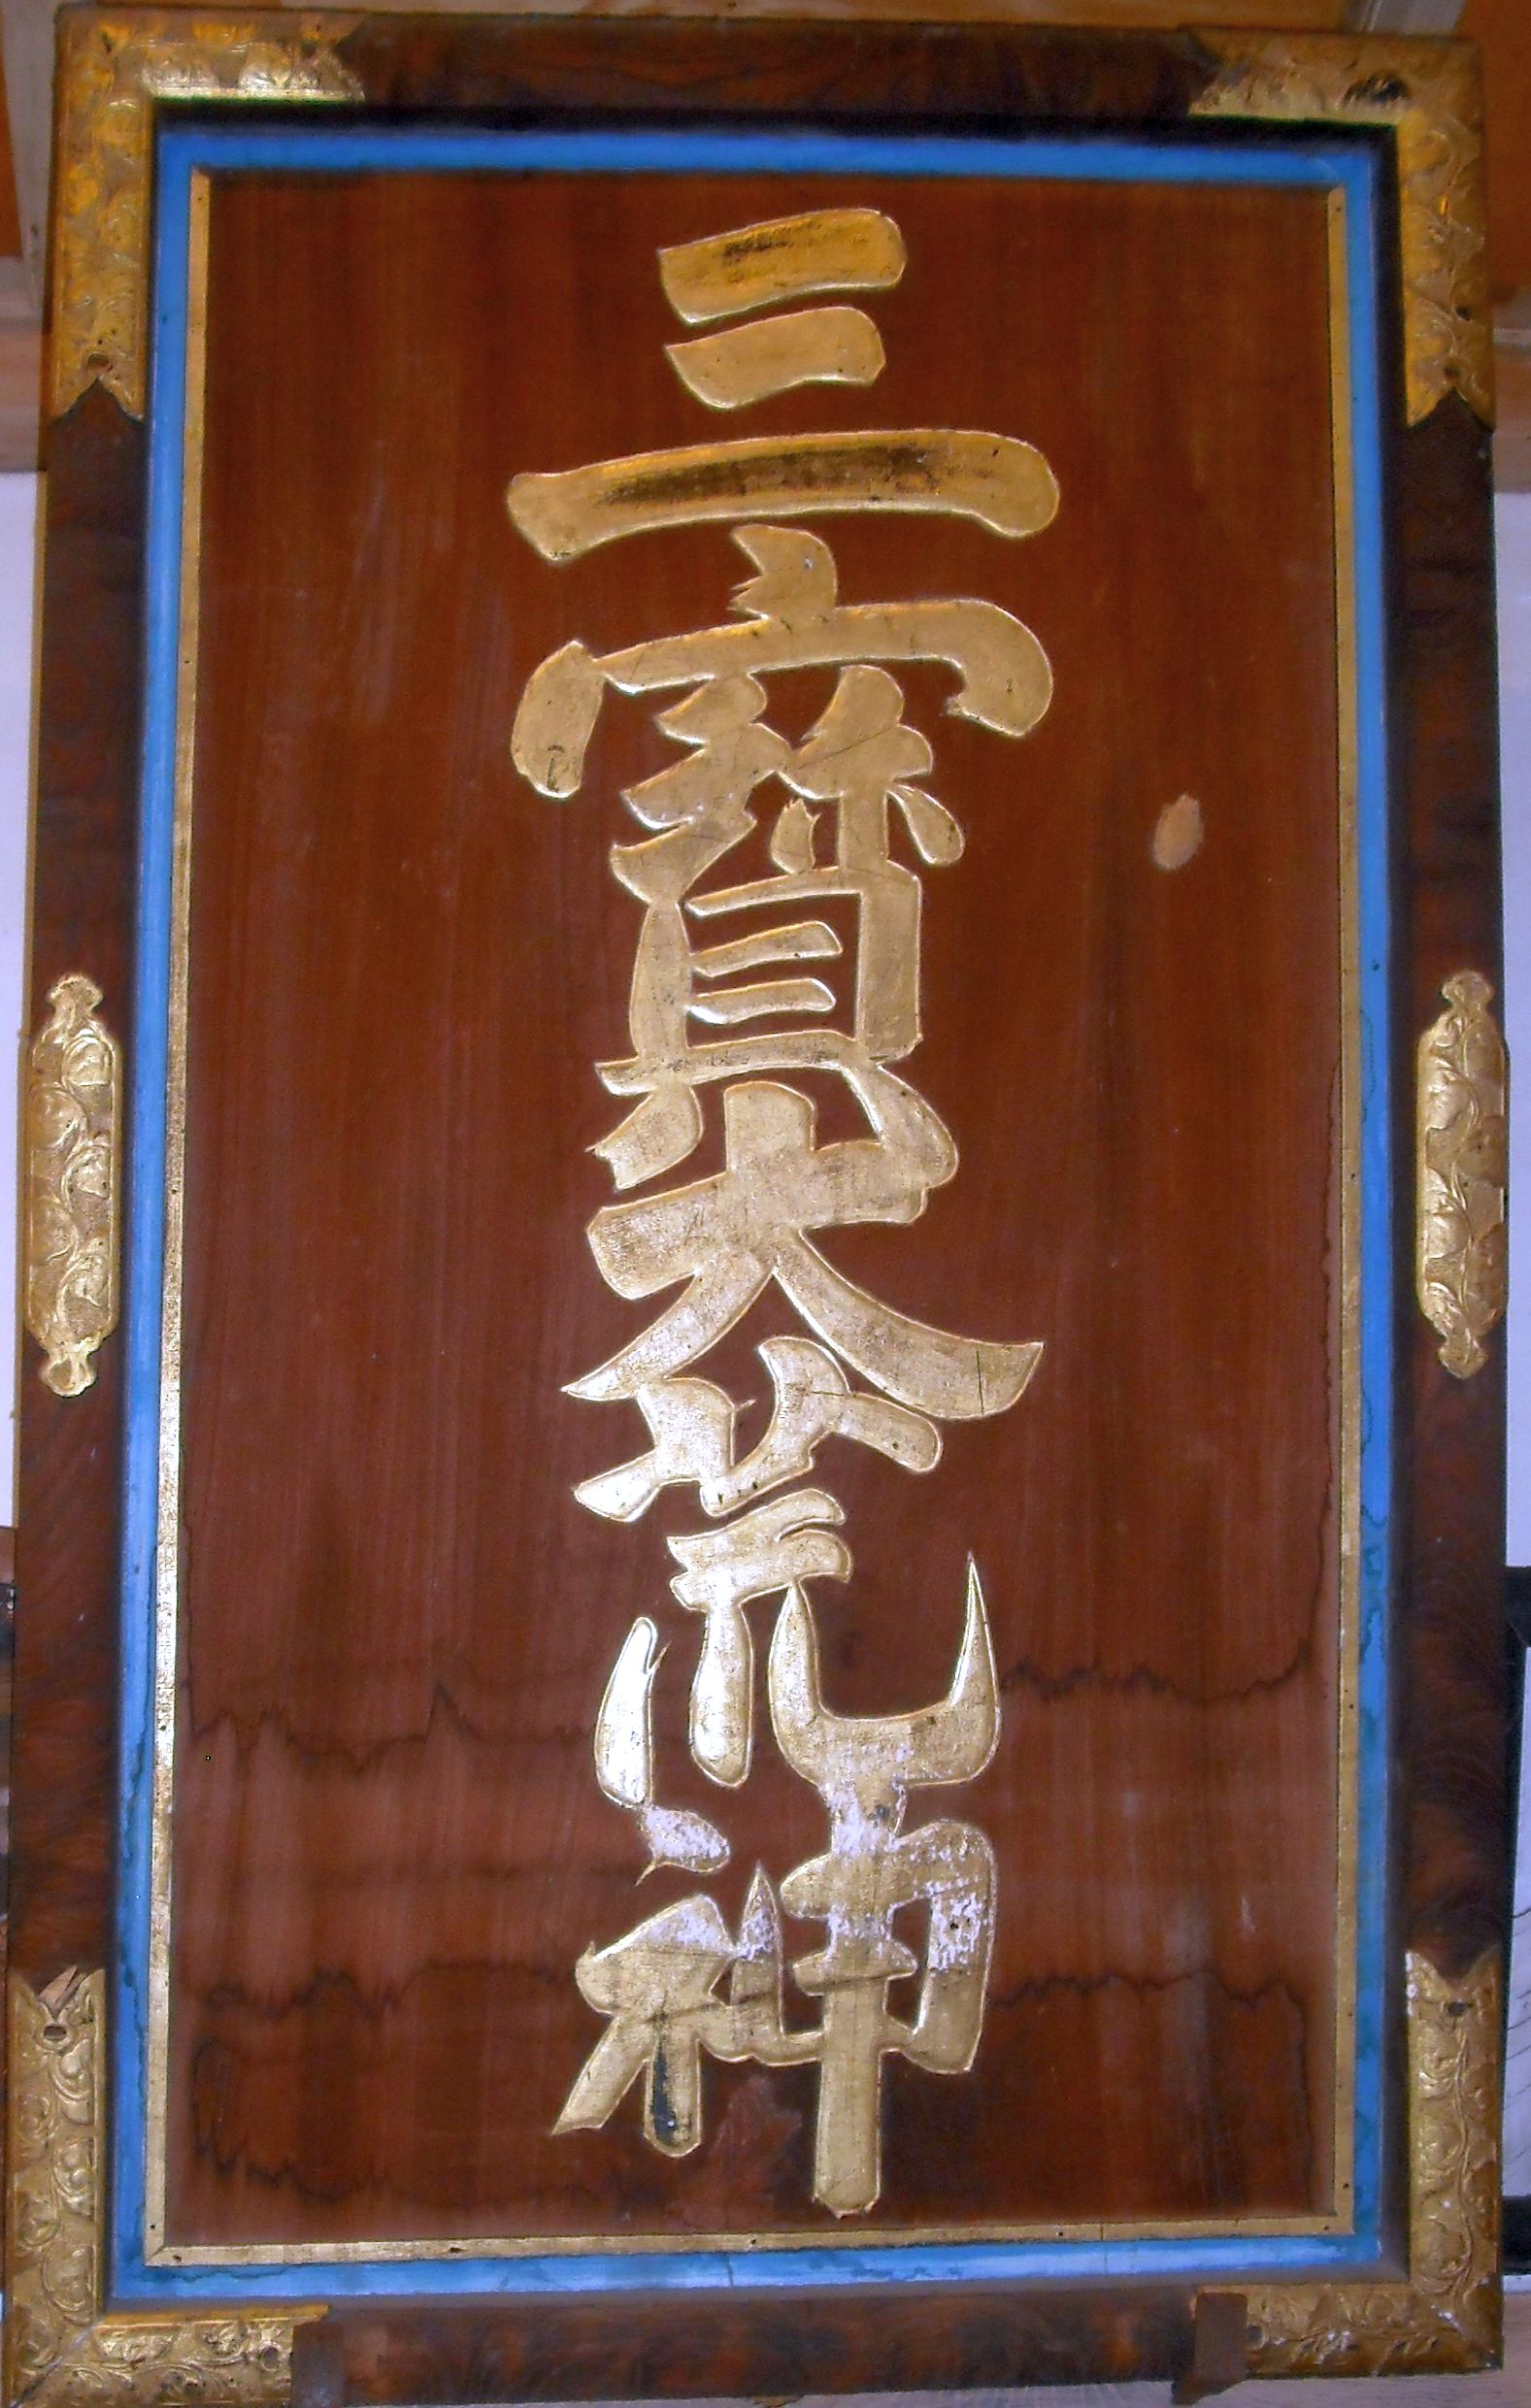 三寳大荒神